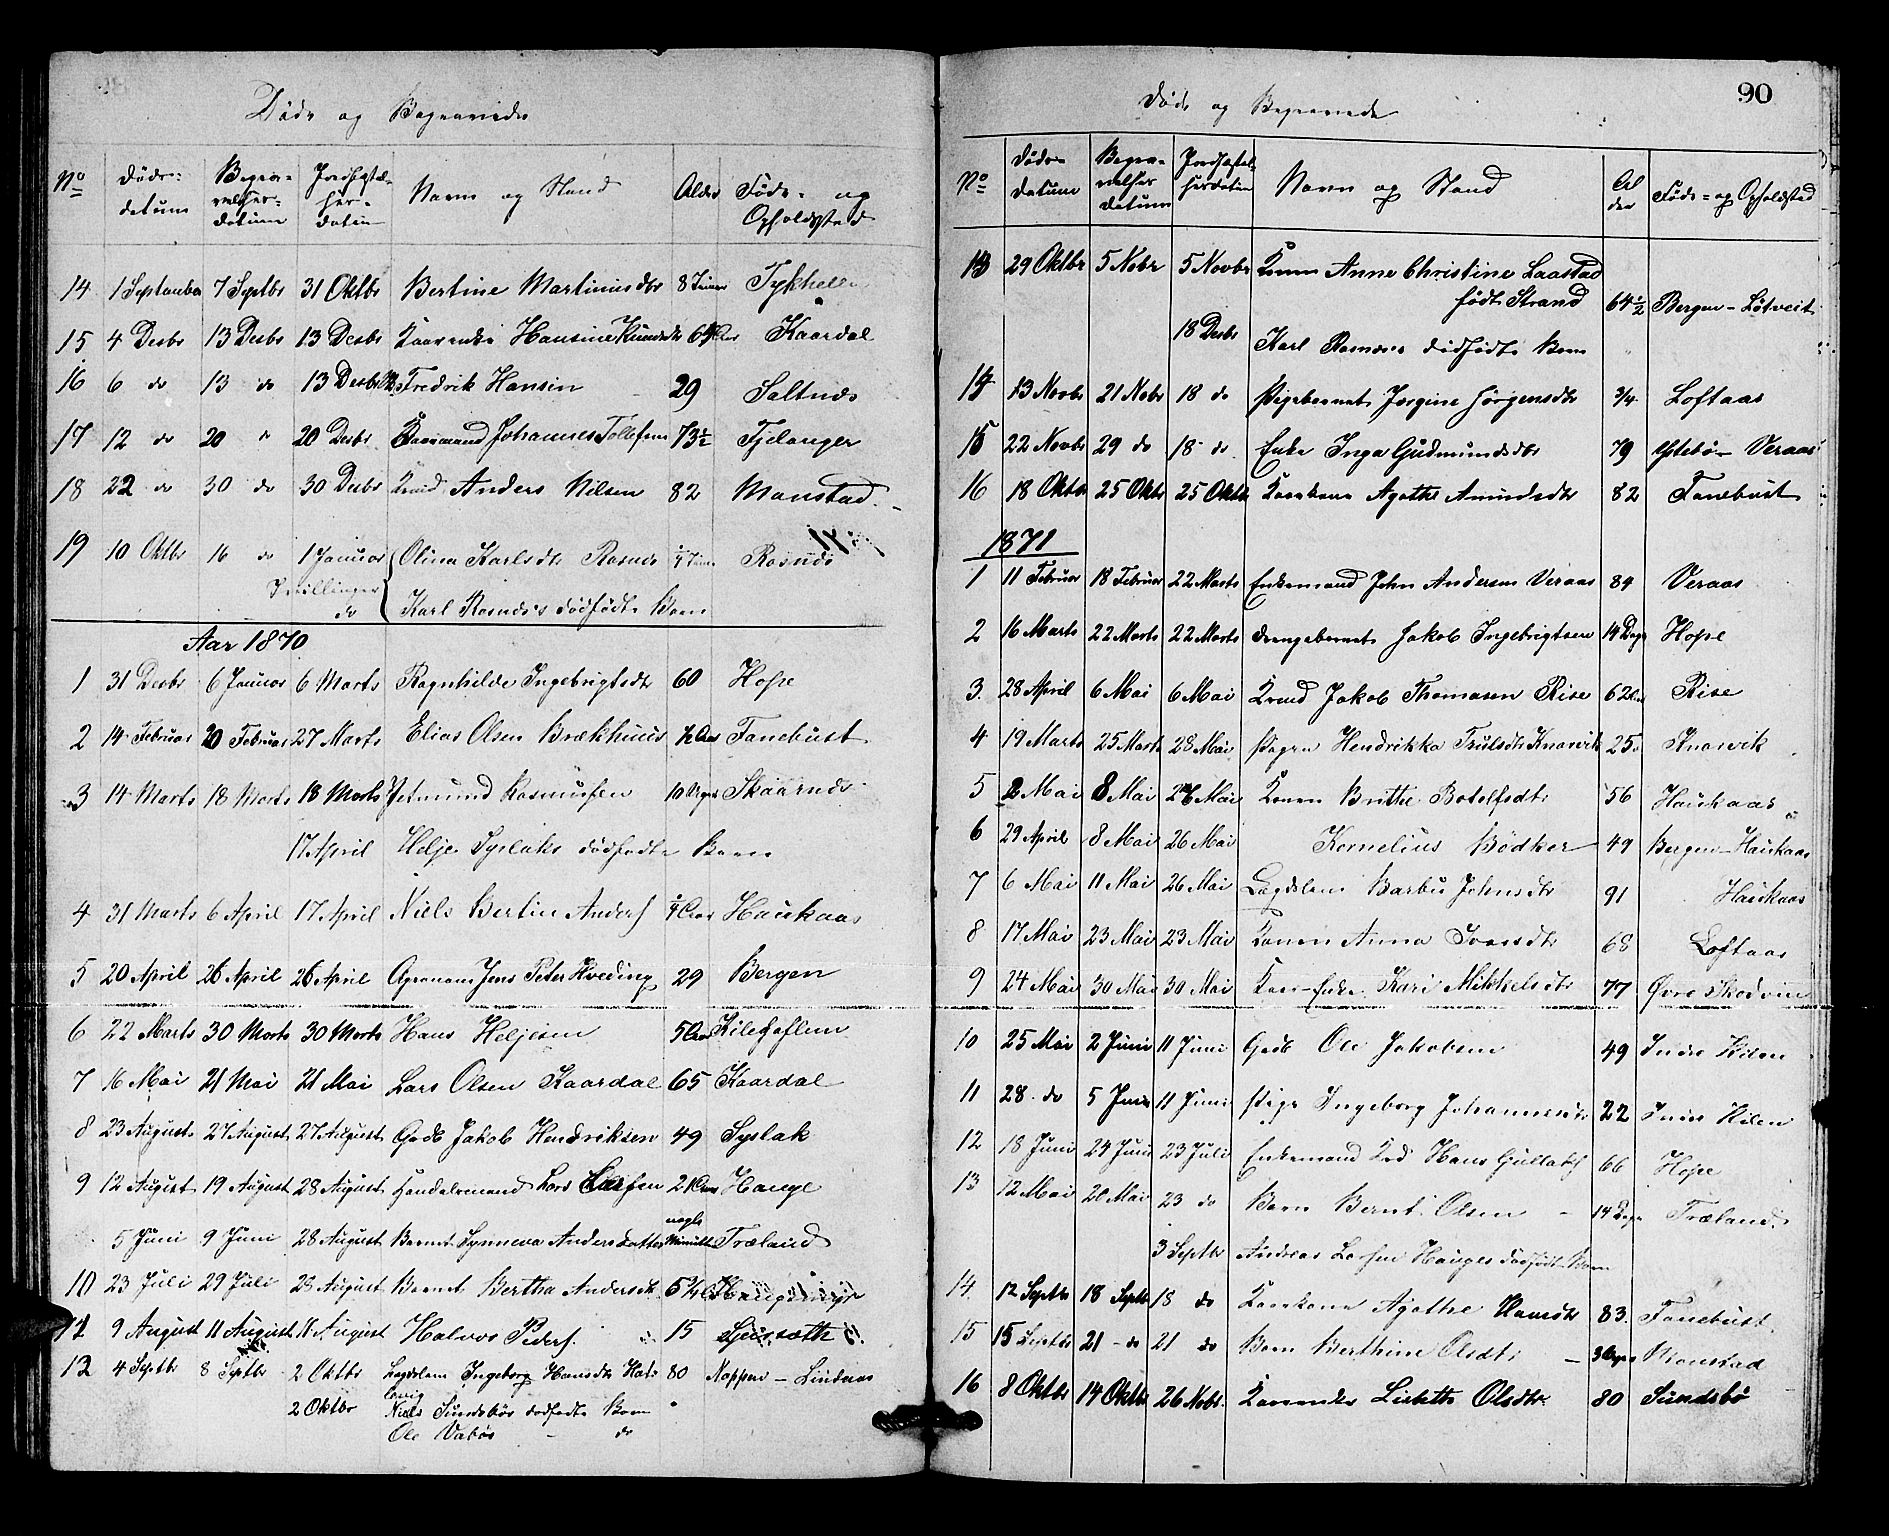 Døde og Begravede
No Døds-datum Begravelses-datum Jordfæstelses-datum Navn og Stand Alder Føde- og Opholdssted
14 1 September 7 Septbr 31 Oktbr Bertine Martinusdtr 8 Timer
15 4 Decbr 13 Decbr 13 Decbr Kaarenke Hansine 64 Aar Kaardal
16 6 do 13 do 13 Decbr Fredrik Hansen 29 Saltnes
17 12 do 20 " 20 Decbr Kaarmand Johannes Tollefsen 73½ Fjelanger
18 22 do 30 do 30 Decbr Anders Nilsen 82 Monstad
19 10 Oktbr 16 do 1 Januar Olina Karlsdtr Rosnes Rosnes
Tvillinger do Karl Rosnes's dødfødte Barn
Aar 1870
1 31 Decbr 6 Januar 6 Marts Ragnhilde Ingebrigtsdtr 60 Hope
2 14 Februar 20 Februar 27 Marts Elias Olsen Brækhuus ½ Aar Fanebust
3 14 Marts 18 Marts 18 Marts Rasmussen 10 Skaarnes
17 April Helje Syslaks dødfødte Barn
4 31 Marts 6 April 17 April Niels Bertin Anders ¼ Aar Haukaas
5 20 April 26 April 26 April Agronom Jens Peter Hveding 29 Bergen
6 22 Marts 30 Marts 30 Marts Hans Heljesen 5 Aar
7 16 Mai 21 Mai 21 Mai Lars Olsen Kaardal 65 Kaardal
8 23 August 27 August 27 August Gbdr Jakob Hendriksen 49 Syslak
9 12 August 19 August 28 August Handelsmand Lars Larsen 21 Aar Hauge
5 Juni 9 Juni 28 August Barnet Synneva Andersdatter nogle Minutter Træland
10 23 Juli 29 Juli 28 August Barnet Bertha Andersdtr 5¾
11 9 August 11 August 11 August Halvor Peders 15
13 4 Septbr 8 Septbr 2 Oktbr Lægdslem Ingeborg Hansdtr 80 Noppen - Lindaas
2 Oktbr Niels Sundsbøs dødfødte Barn "
Ole Vabøs - do
90
Døde og Begravede
No Døds-datum Begravelses datum Jordfæstelsesdatum Navn og Stand Alder Føde- og Opholdssted
13 29 Oktbr 5 Nobr 5 Novbr Konen Anne Christine Laastad
født Strand 64½ Bergen - Løtveit
18 Decbr Karl Rosnes's dødfødte Barn "
14 13 Novbr 21 Nobr 18 do Pigebarnet Jørgine Jørgensdtr ¾ Loftaas
15 22 Novbr 29 do 18 do Enke Inga Gudmundsdtr 79 Ystebø - Veraas
16 18 Oktbr 25 Oktbr 25 Oktbr Kaarkone Agathe Amundsdtr 82 Fanebust
1871
1 11 Februar 18 Februar 22 Marts Enkemand John Andersen Veraas 84 Veraas
2 16 Marts 22 Marts 22 Marts Drengebarnet Jakob Ingebrigtsen 14 Dage Hope
3 28 April 6 Mai 6 Mai Jakob Thomasen Rise 62 Aar Rise
4 19 Marts 25 Marts 28 Mai Pigen Hendrikka Trulsdtr Knarvik 25 Knarvik
5 2 Mai 8 Mai 26 Mai Konen Brithe Botolfsdtr 56 Haukaas
6 29 April 8 Mai 26 Mai Kornelius Bødker 49 Bergen - Haukaas
7 6 Mai 11 Mai 26 Mai Lægdslem Barbru Johnsdtr 91 Haukaas
8 17 Mai 23 Mai 23 Mai Konen Anna Ivarsdtr 68 Loftaas
9 24 Mai 30 Mai 30 Mai Kaar-Enke Kari Mikkelsdtr 77 Øvre Skodvin
10 25 Mai 2 Juni 11 Juni Gbdr Ole Jakobsen 49 Indre Kilen
11 28 do 5 Juni 11 Juni Pige Ingeborg Johannesdtr 22 Indre Kilen
12 18 Juni 24 Juni 23 Juli Enkemand Hans Gullaks 66 Hope
13 12 Mai 20 Mai 23 do Barn Bernt Olsen - 14 Dage Træland
3 Septbr Andreas Larsen Hauges dødfødte Barn
14 12 Septbr 18 Septbr 18 do Kaarkone Agathe Hansdtr 83 Fanebust
15 15 Septbr 21 - do 21 do Barn Berthine Olsdtr - 3 Dage Monstad
16 8 Oktbr 14 Oktbr 26 Nobr Kaarenke Lisbeth Olsdtr 80 Sundsbø